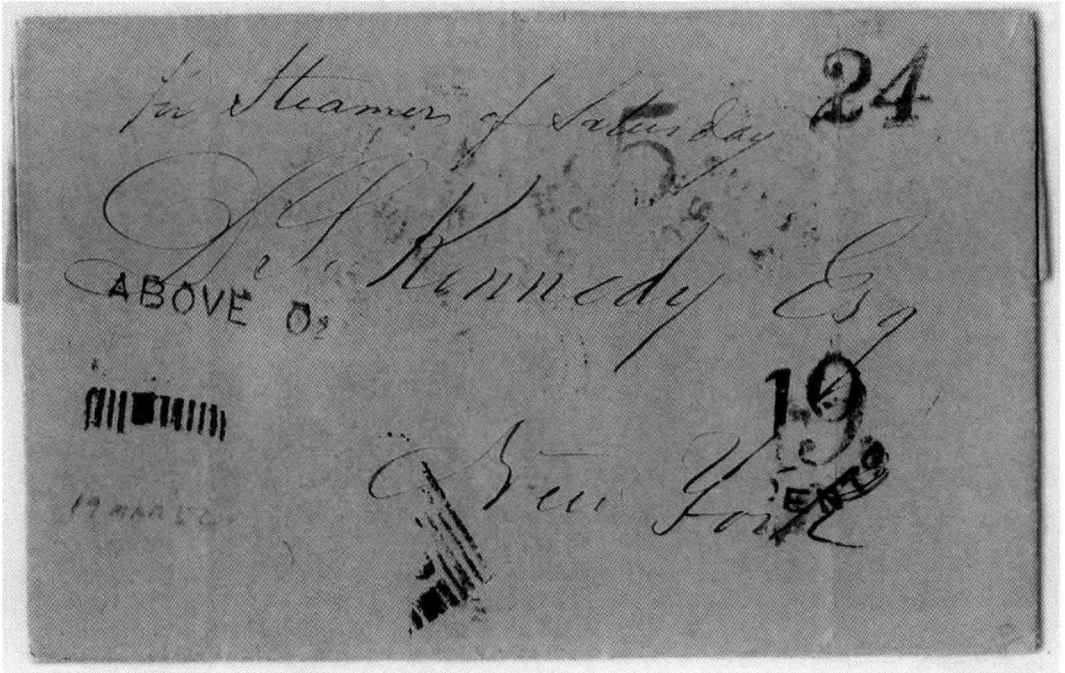 24
Per Steamer of Saturday
5
J. S. Kennedy Esq
ABOVE Oz
19
CENTS
New York
19 MAR 52